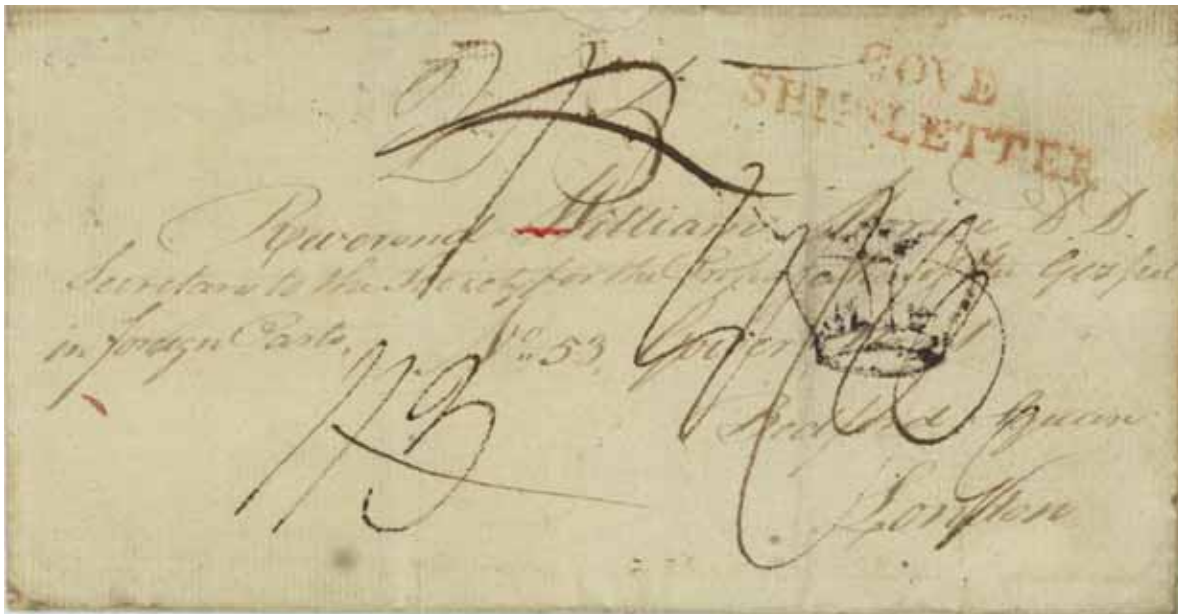 COVE
SHIP LETTER
Reverend William D D
Secretary to the Society for the Propagation of the Gospel
in foreign Parts, No 53, Gower
Bedford Square
London